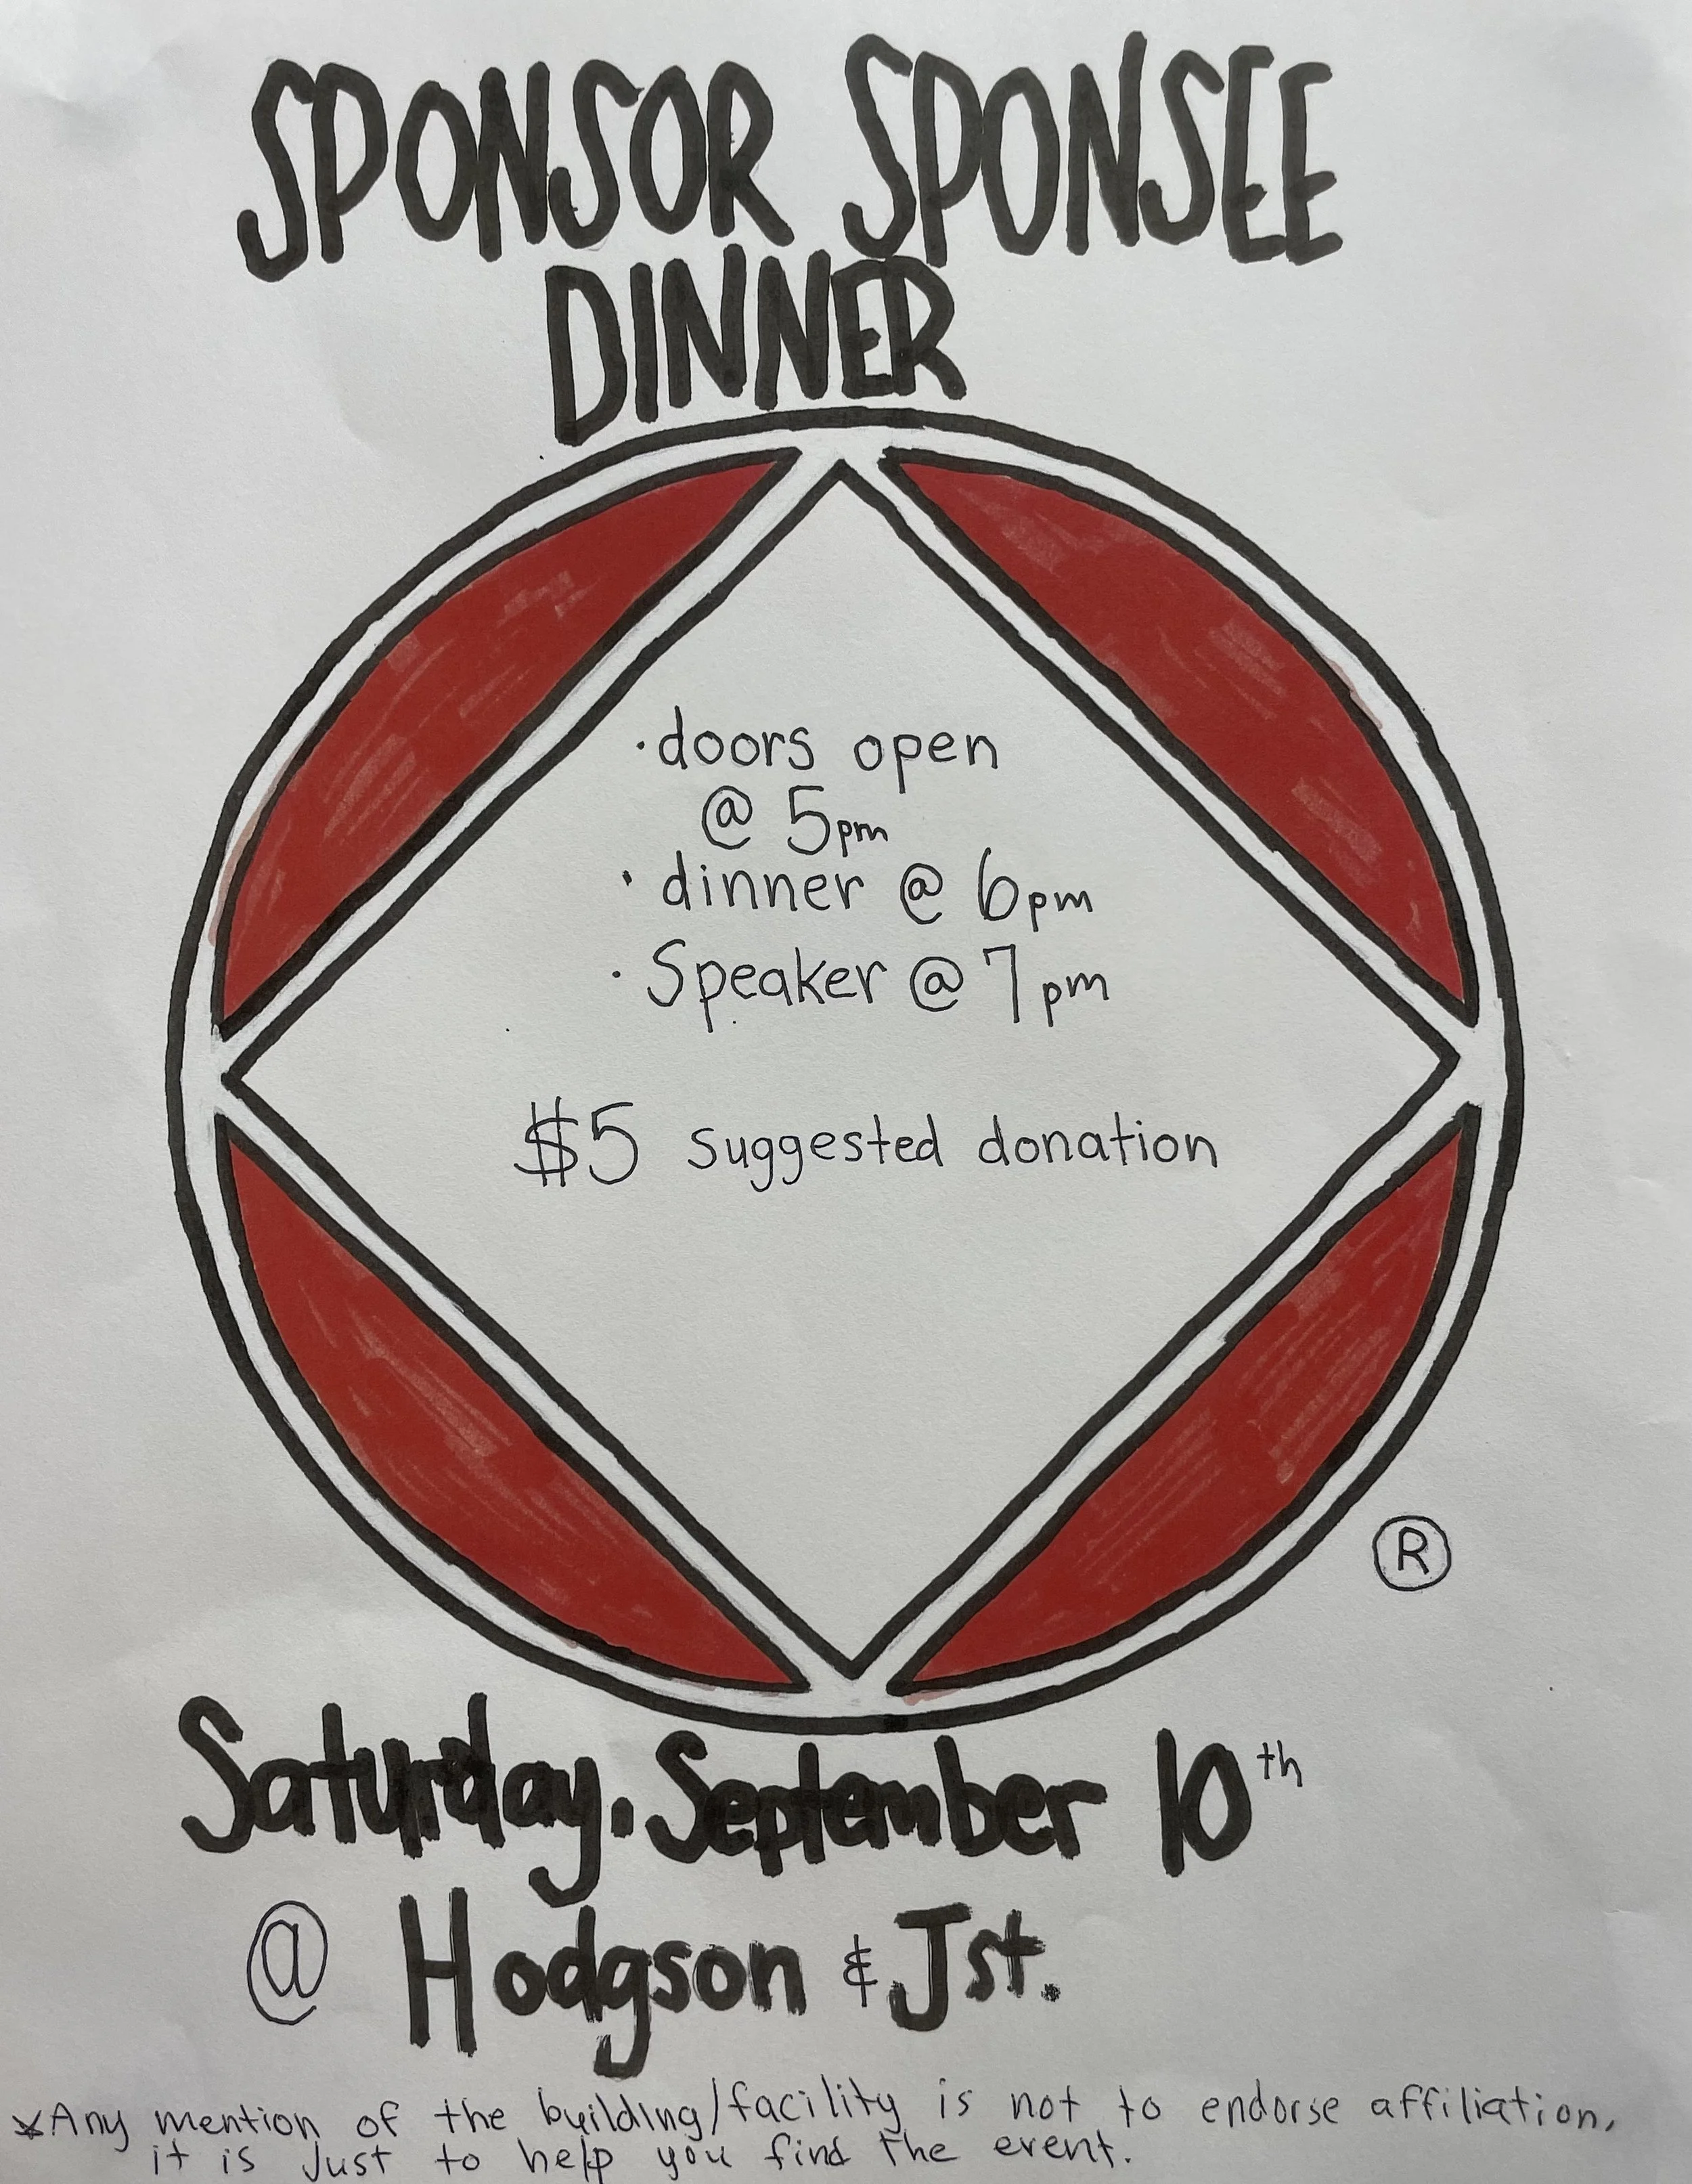 SPONSOR SPONSEE
DINNER
· doors open
@ 5pm
· dinner @ 6pm
· Speaker @ 7pm
$5 suggested donation
®
Saturday, September 10th
@ Hodgson & J st.
*Any mention of the building/facility is not to endorse affiliation,
it is just to help you find the event.